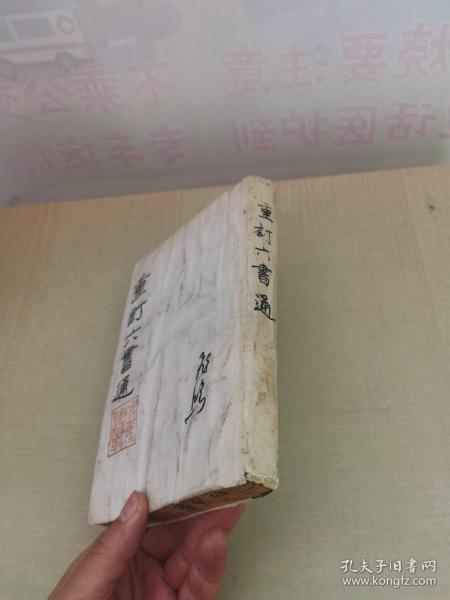 烧要注意
不乘公
话医护到
专车送
重訂六書通
重訂六書通
孔夫子旧书网
www.kongfz.com